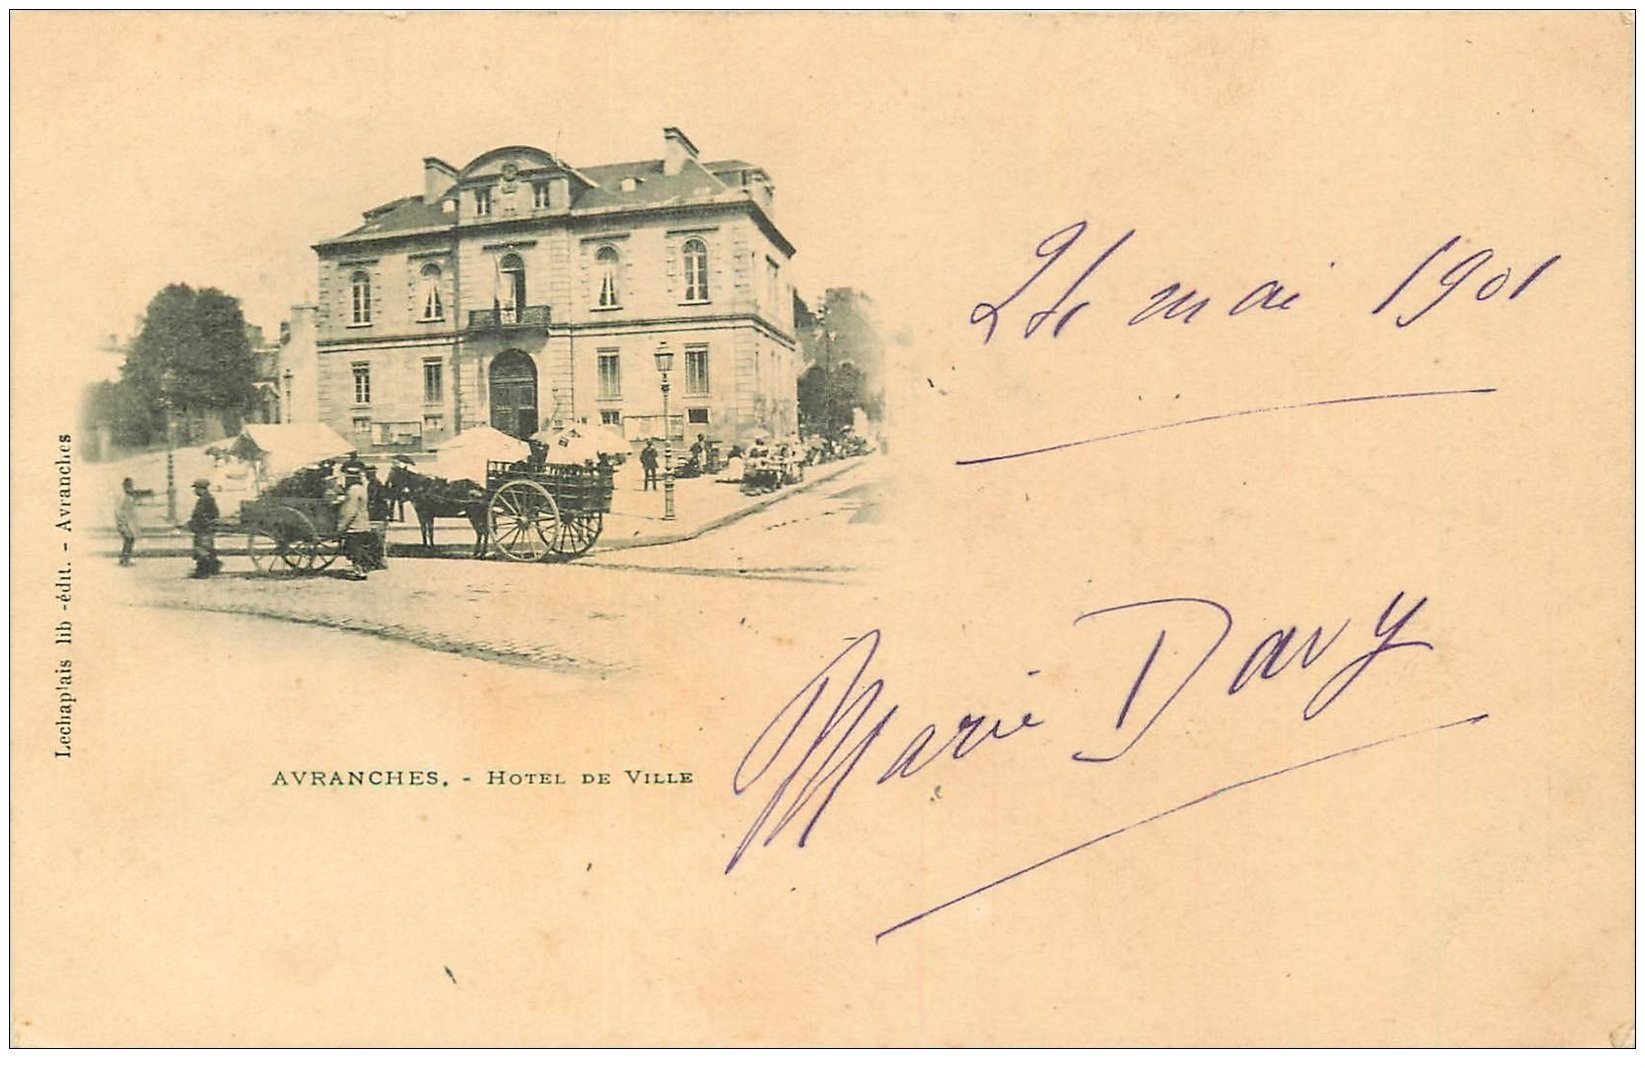 24 mai 1901
Marie Davy
AVRANCHES. - HOTEL DE VILLE
Lechaplais lib -édit. - Avranches